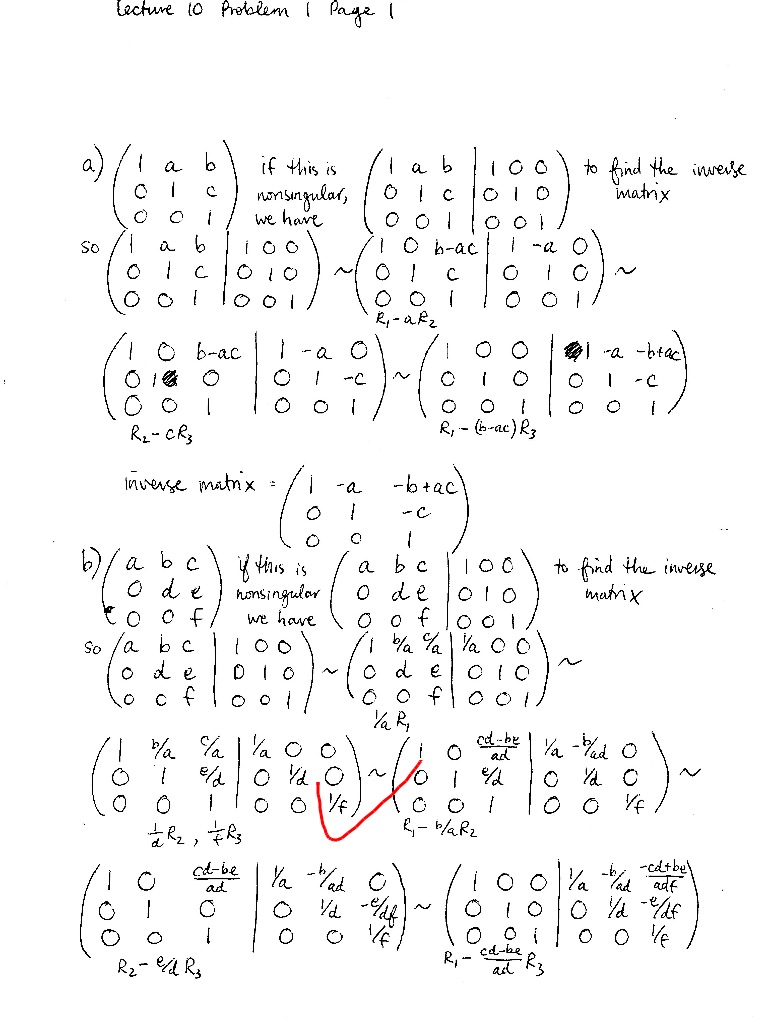 Lecture 10 Problem 1 Page 1
a) (1 a b; 0 1 c; 0 0 1) if this is nonsingular, we have (1 a b | 1 0 0; 0 1 c | 0 1 0; 0 0 1 | 0 0 1) to find the inverse matrix
so (1 a b | 1 0 0; 0 1 c | 0 1 0; 0 0 1 | 0 0 1) ~ (1 0 b-ac | 1 -a 0; 0 1 c | 0 1 0; 0 0 1 | 0 0 1) ~
R₁-aR₂
(1 0 b-ac | 1 -a 0; 0 1 0 | 0 1 -c; 0 0 1 | 0 0 1) ~ (1 0 0 | 1 -a -b+ac; 0 1 0 | 0 1 -c; 0 0 1 | 0 0 1)
R₂-cR₃ R₁-(b-ac)R₃
inverse matrix = (1 -a -b+ac; 0 1 -c; 0 0 1)
b) (a b c; 0 d e; 0 0 f) if this is nonsingular we have (a b c | 1 0 0; 0 d e | 0 1 0; 0 0 f | 0 0 1) to find the inverse matrix
so (a b c | 1 0 0; 0 d e | 0 1 0; 0 0 f | 0 0 1) ~ (1 b/a c/a | 1/a 0 0; 0 d e | 0 1 0; 0 0 f | 0 0 1) ~
1/a R₁
(1 b/a c/a | 1/a 0 0; 0 1 e/d | 0 1/d 0; 0 0 1 | 0 0 1/f) ~ (1 0 cd-be/ad | 1/a -b/ad 0; 0 1 e/d | 0 1/d 0; 0 0 1 | 0 0 1/f) ~
1/d R₂, 1/f R₃ R₁-b/a R₂
(1 0 cd-be/ad | 1/a -b/ad 0; 0 1 0 | 0 1/d -e/df; 0 0 1 | 0 0 1/f) ~ (1 0 0 | 1/a -b/ad -cd+be/adf; 0 1 0 | 0 1/d -e/df; 0 0 1 | 0 0 1/f)
R₂-e/d R₃ R₁-cd-be/ad R₃